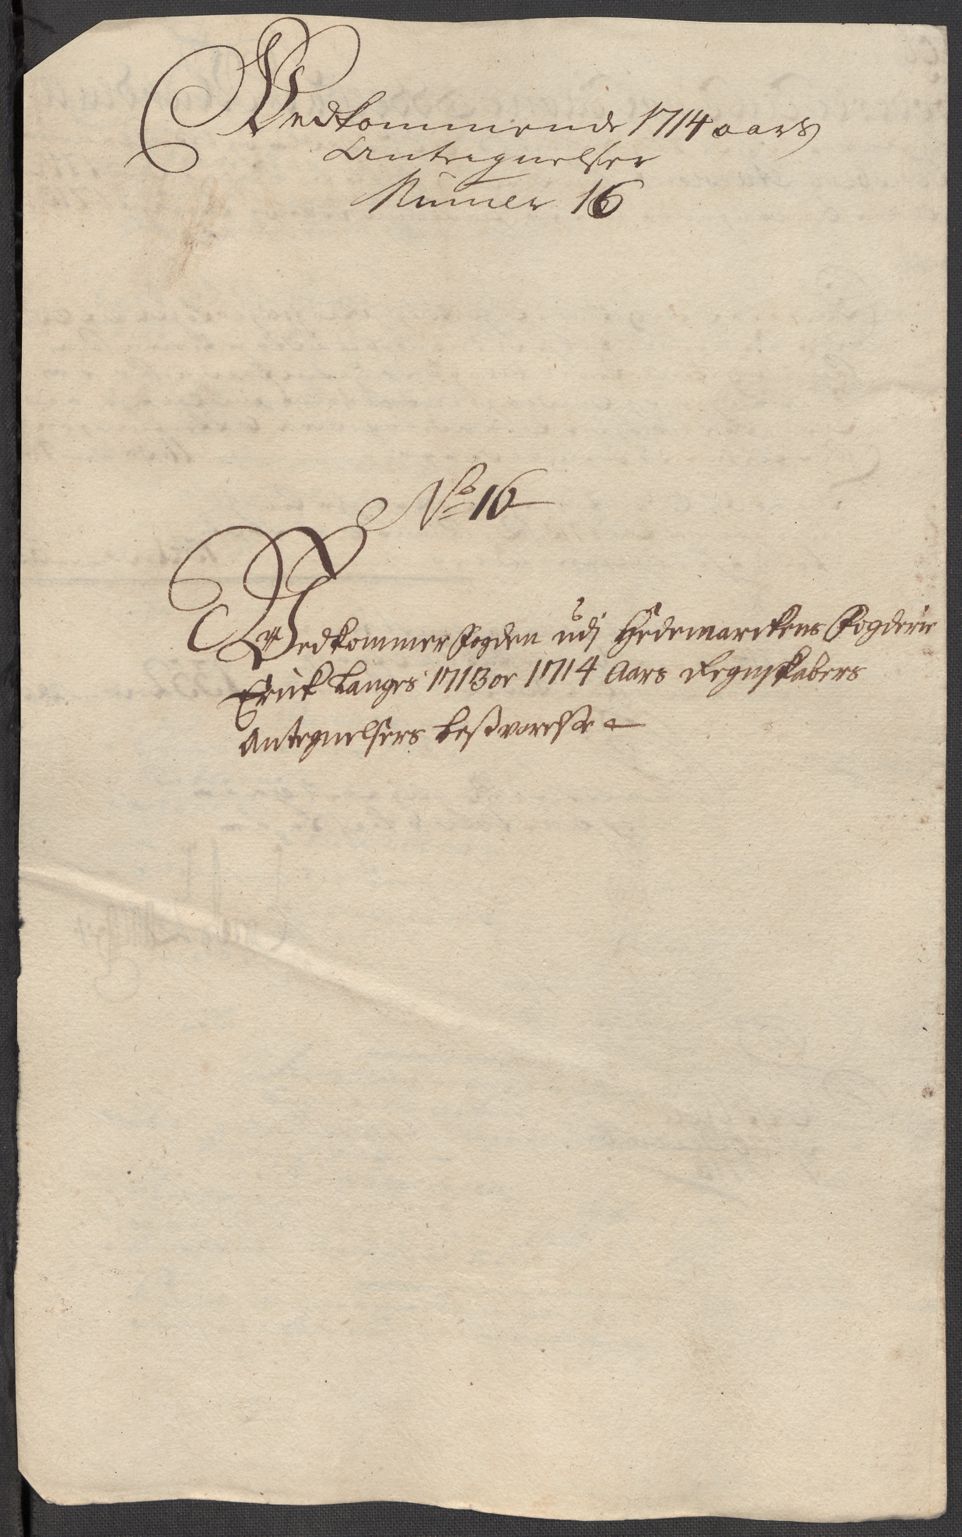 Vedkommende 1714 aars
Antegnelser
Numer 16
No 16
Vedkommer Fogden udj Hedemarckens Fogderie
Erick Langes 1713 or 1714 Aars Regnskabers
Antegnelsers besvarelse